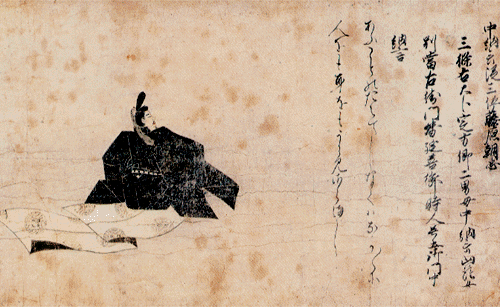 中納言従三位藤原朝忠
三條右大臣定方卿二男母中納言山蔭女
別當右衛門督延喜御時人号土御門中
納言
あふことのたえてしなくはなか〳〵に
人をも身をもうらみさらまし